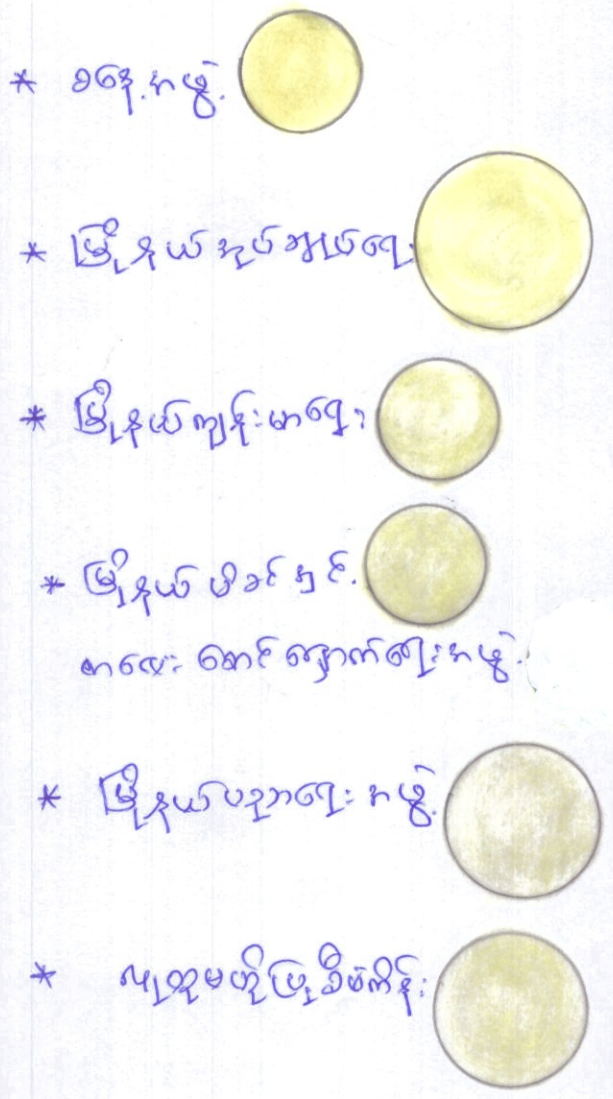 * ခနေ့အဖွဲ့
* မြို့နယ်အုပ်ချုပ်ရေး
* မြို့နယ်ကျန်းမာရေး
* မြို့နယ် မိခင်နှင့်
ကလေး စောင့်ရှောက်ရေးအဖွဲ့
* မြို့နယ်ပညာရေး အဖွဲ့
* လူထုဗဟိုပြု စီမံကိန်း